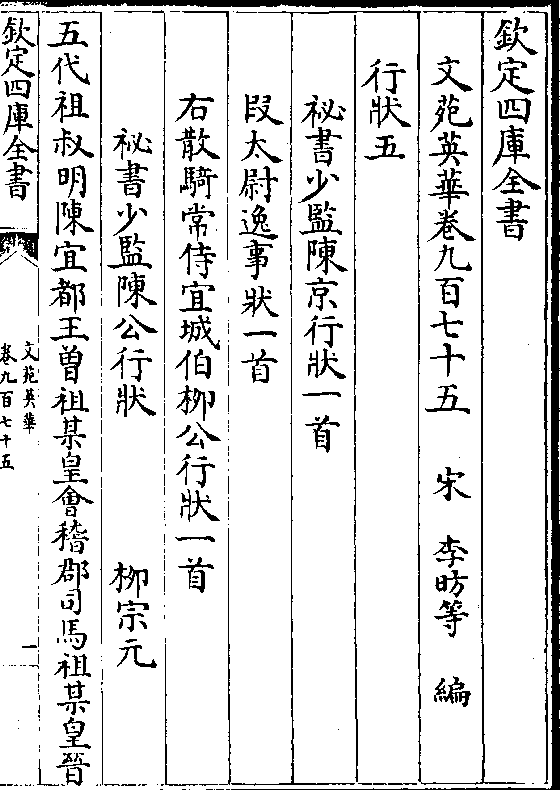 欽定四庫全書
文苑英華卷九百七十五　宋　李昉等　編
行狀五
祕書少監陳京行狀一首
段太尉逸事狀一首
右散騎常侍宜城伯柳公行狀一首
祕書少監陳公行狀　柳宗元
五代祖叔明陳宜都王曽祖某皇會稽郡司馬祖某皇晉
欽定四庫全書
文苑英華
卷九百七十五
一